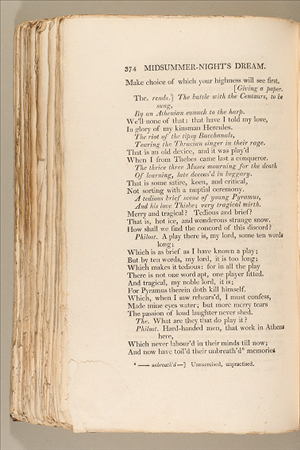 374 MIDSUMMER-NIGHT'S DREAM.
Make choice of which your highness will see first.
[Giving a paper.
The. reads.] The battle with the Centaurs, to be
sung,
By an Athenian eunuch to the harp.
We'll none of that: that have I told my love,
In glory of my kinsman Hercules.
The riot of the tipsy Bacchanals,
Tearing the Thracian singer in their rage.
That is an old device, and it was play'd
When I from Thebes came last a conqueror.
The thrice three Muses mourning for the death
Of learning, late deceas'd in beggary.
That is some satire, keen, and critical,
Not sorting with a nuptial ceremony.
A tedious brief scene of young Pyramus,
And his love Thisbe; very tragical mirth.
Merry and tragical? Tedious and brief?
That is, hot ice, and wonderous strange snow.
How shall we find the concord of this discord?
Philost. A play there is, my lord, some ten words
long;
Which is as brief as I have known a play;
But by ten words, my lord, it is too long;
Which makes it tedious: for in all the play
There is not one word apt, one player fitted.
And tragical, my noble lord, it is;
For Pyramus therein doth kill himself.
Which, when I saw rehears'd, I must confess,
Made mine eyes water; but more merry tears
The passion of loud laughter never shed.
The. What are they that do play it?
Philost. Hard-handed men, that work in Athens
here,
Which never labour'd in their minds till now;
And now have toil'd their unbreath'd* memories
* —— unbreath'd—] Unexercised, unpractised.